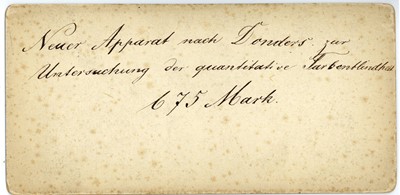 Neuer Apparat nach Donders zur
Untersuchung der quantitative Farbenblindheit
675 Mark.